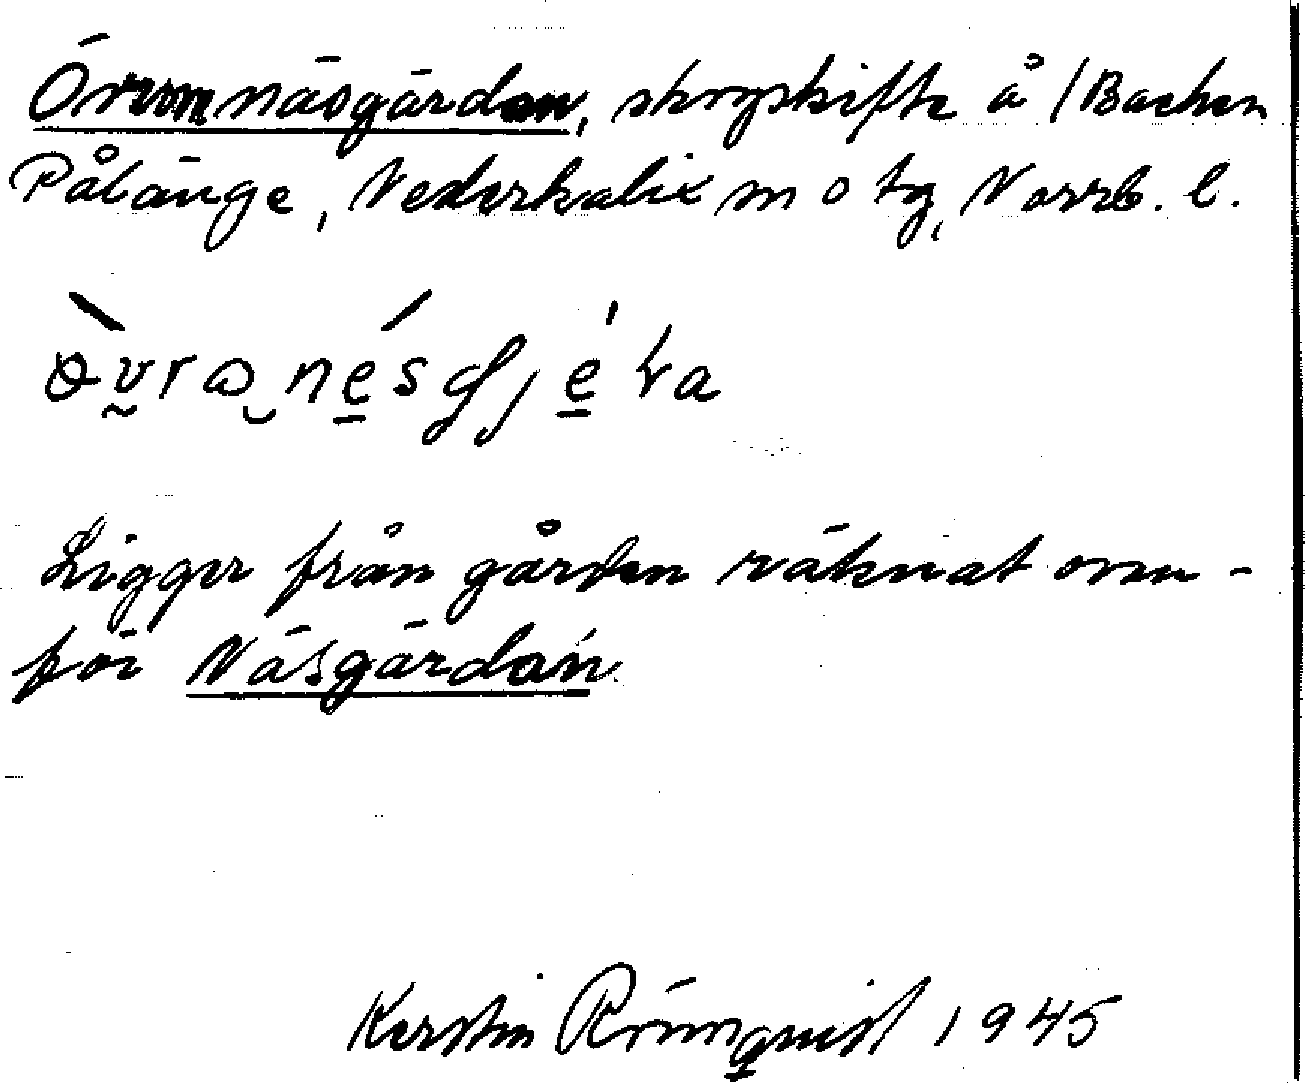 Övromnäsgärdan, skogskifte å /Backen
Pålänge, Nederkalix sn o tg, Norrb. l.
Ligger från gården räknat ovan-
för Näsgärdan.
Kerstin Rönnquist 1945